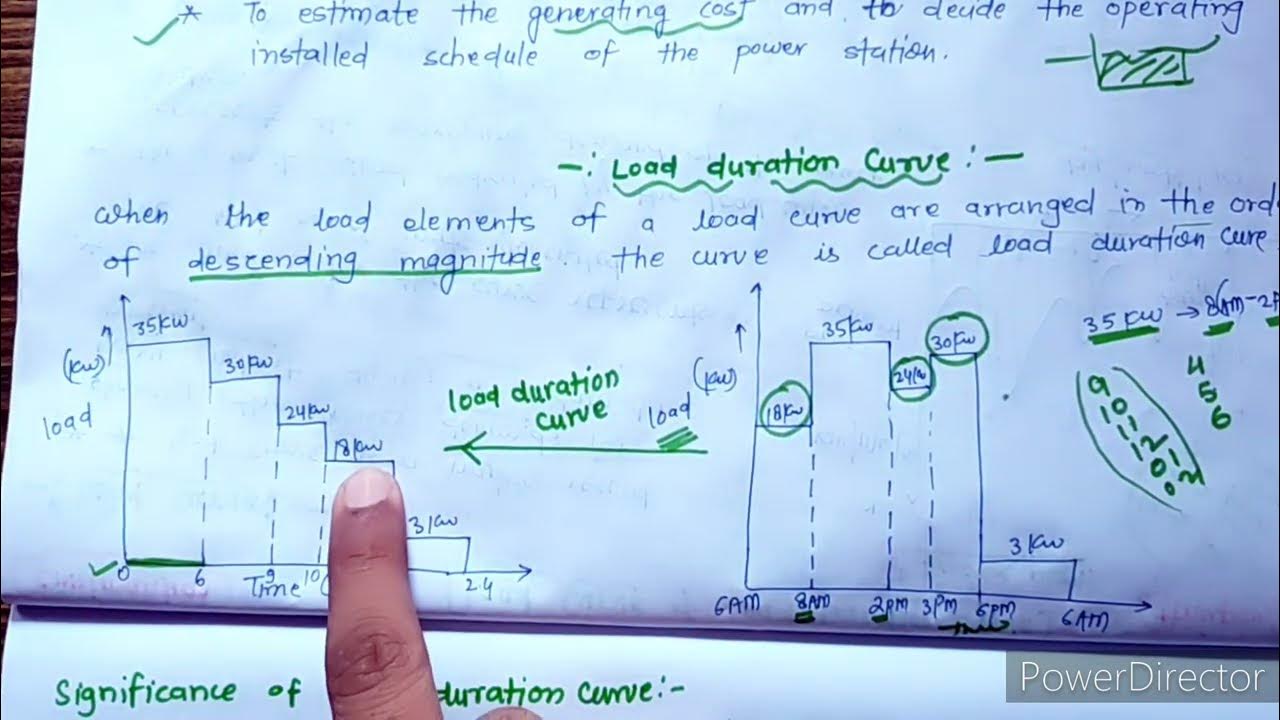 * To estimate the generating cost and to decide the operating
installed schedule of the power station.
-: Load duration Curve :-
When the load elements of a load curve are arranged in the ord
of descending magnitude. the curve is called load duration cure
35kw
30kw
24kw
18kw
3kw
(kw)
load
0 6 9 10 24
Time
load duration
curve
(kw)
load
18kw
35kw
24kw
30kw
3kw
6AM 8AM 2pm 3pm 6pm 6AM
35 kw → 8AM-2P
4
5
6
9
10
11
12
Significance of duration Curve:-
PowerDirector